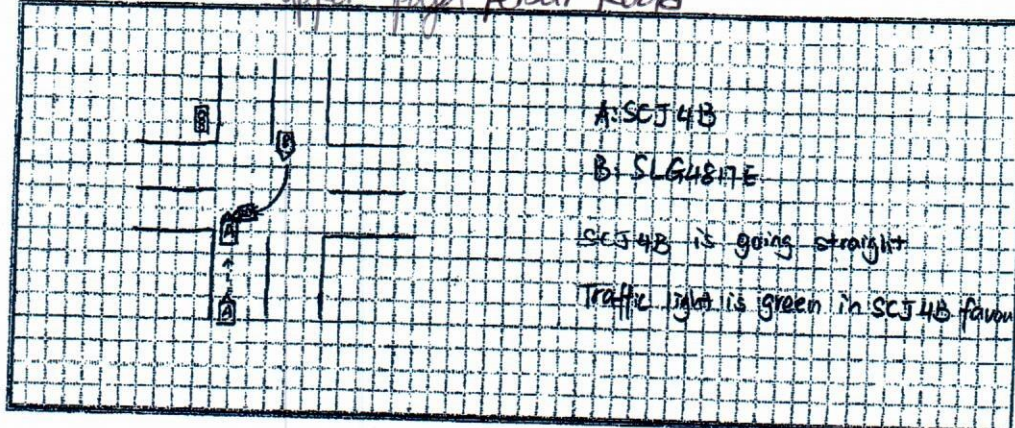 A: SCJ 4B
B: SLG4817E
SCJ 4B is going straight
Traffic light is green in SCJ 4B favou
A
B
A